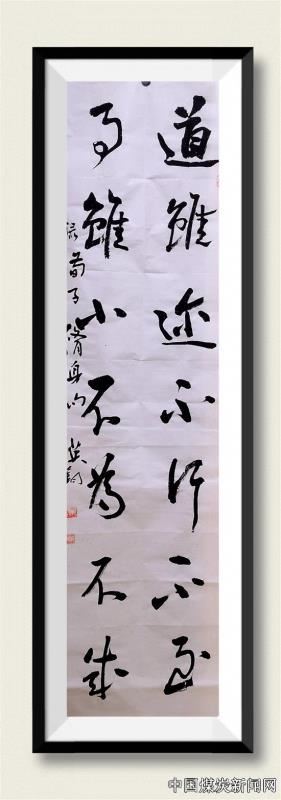 道雖迩不行不至
事雖小不為不成
荀子脩身句
中国煤炭新闻网